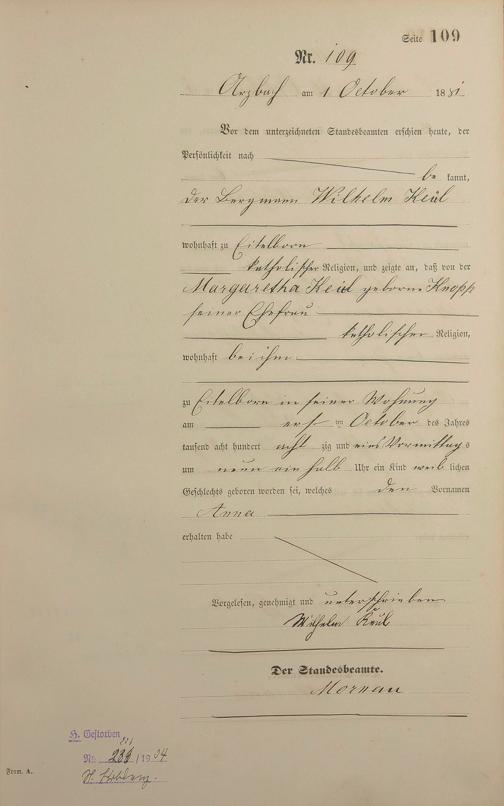 Seite 109
Nr. 109
Arzbach am 1 October 1881
Vor dem unterzeichneten Standesbeamten erschien heute, der
Persönlichkeit nach
be kannt,
der Bergmann Wilhelm Keul
wohnhaft zu Eitelborn
katholischer Religion, und zeigte an, daß von der
Margaretha Keul geborne Knopp
seiner Ehefrau
katholischer Religion,
wohnhaft bei ihm
zu Eitelborn in seiner Wohnung
am ersten October des Jahres
tausend acht hundert acht zig und eins Vormittags
um neun ein halb Uhr ein Kind weib lichen
Geschlechts geboren worden sei, welches den Vornamen
Anna
erhalten habe
Vorgelesen, genehmigt und unterschrieben
Wilhelm Keul
Der Standesbeamte.
Mornau
H. Gestorben
Nr. /19
Form. A.